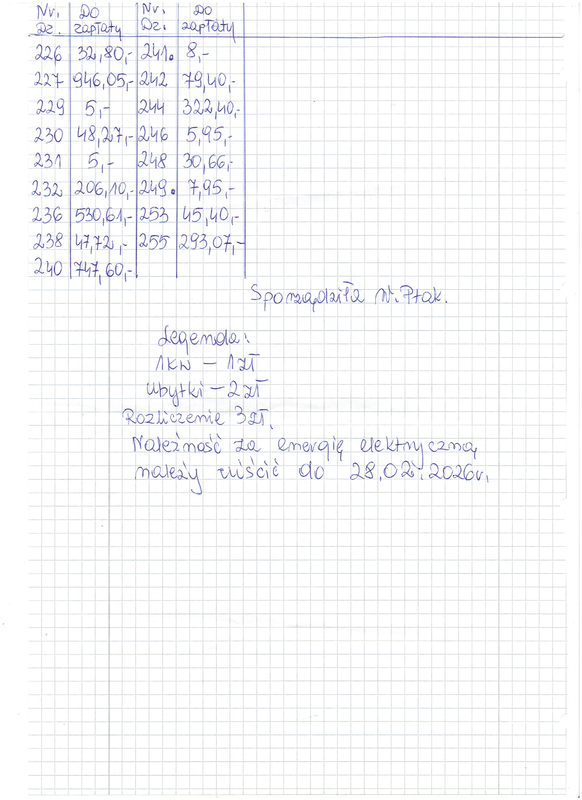 Nr. Do Nr. Do
Dz. zapłaty Dz. zapłaty
226 32,80,- 241. 8,-
227 946,05,- 242 79,40,-
229 5,- 244 322,40,-
230 48,27,- 246 5,95,-
231 5,- 248 30,66,-
232 206,10,- 249. 7,95,-
236 530,61,- 253 45,40,-
238 47,72,- 255 293,07,-
240 747,60,-
Sporządziła W. Ptak.
Legenda:
1 KW – 1 zł
Ubytki – 2 zł
Rozliczenie 3 zł.
Należność za energię elektryczną
należy uiścić do 28.02.2026r.